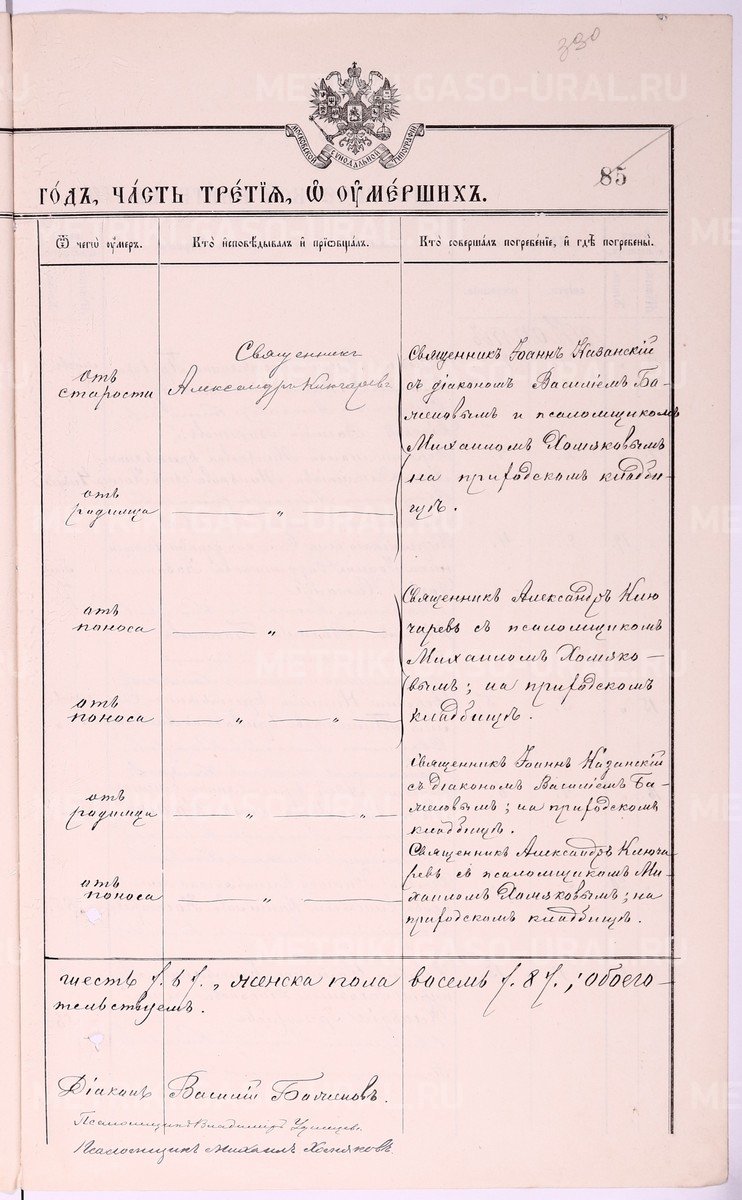 330
METRIKI.GASO-URAL.RU
МОСКОВСКОЙ СѴНОДАЛЬНОЙ ТИПОГРАФІИ
85
ГО́ДЪ, ЧА́СТЬ ТРЕ́ТІѦ, Ѡ҆ ОУ҆МЕ́РШИХЪ.
Ѿ чегѡ̀ оу҆́меръ.
Кто̀ и҆сповѣ́дывалъ и҆ прїѡбща́лъ.
Кто̀ соверша́лъ погребе́нїе, и҆ гдѣ̀ погребены̀.
отъ
старости
Священникъ
Александръ Ключаревъ
Священникъ Іоаннъ Казанскій
съ діакономъ Василіемъ Ба-
женовымъ и псаломщикомъ
Михаиломъ Хомяковымъ
на приходскомъ кладби-
щѣ.
отъ
родимца
— „ —
отъ
поноса
— „ —
Священникъ Александръ Клю
чаревъ съ псаломщикомъ
Михаиломъ Хомяко-
вымъ; на приходскомъ
кладбищѣ.
отъ
поноса
— „ — „ —
отъ
родимца
— „ — „ —
Священникъ Іоаннъ Казанскій
съ діакономъ Василіемъ Ба-
женовымъ; на приходскомъ
кладбищѣ.
отъ
поноса
— „ —
Священникъ Александръ Ключа-
ревъ съ псаломщикомъ Ми-
хаиломъ Хомяковымъ; на
приходскомъ кладбищѣ.
шесть /. 6 /. , женска пола восемь /. 8 /. ; обоего —
тельствуемъ.
Діаконъ Василій Баженовъ.
Псаломщикъ Владимиръ
Псаломщикъ Михаилъ Хомяковъ.